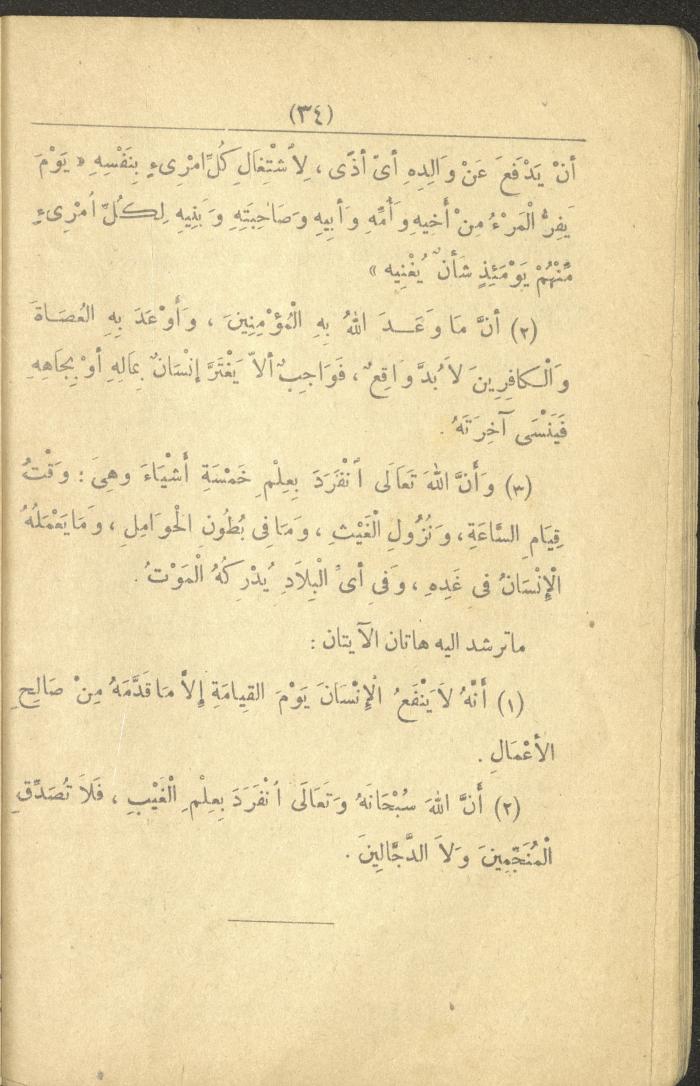 (٣٤)
أنْ يَدْفَعَ عَنْ وَالِدِهِ أىَّ أذًى ، لِاشْتِغَالِ كُلِّ امْرِىءٍ بِنَفْسِهِ « يَوْمَ
يَفِرُّ الْمَرْءُ مِنْ أَخِيهِ وَأُمِّهِ وَأَبِيهِ وَصَاحِبَتِهِ وَبَنِيهِ لِكُلِّ امْرِىءٍ
مِّنْهُمْ يَوْمَئِذٍ شَأنٌ يُغْنِيه »
(٢) أنَّ مَا وَعَدَ اللهُ بِهِ الْمُؤْمِنِينَ ، وَأَوْعَدَ بِهِ العُصَاةَ
وَالْكافِرِينَ لاَ بُدَّ وَاقِعٌ ، فَوَاجِبٌ ألاَّ يَغْتَرَّ إنْسَانٌ بِمَالِهِ أوْ بِجَاهِهِ
فَيَنْسَى آخِرَتَهُ .
(٣) وَأَنَّ اللهَ تَعَالَى انْفَرَدَ بِعِلْمِ خَمْسَةِ أَشْيَاءَ وهِيَ : وَقْتُ
قِيَامِ السَّاعَةِ ، وَنُزُولِ الْغَيْثِ ، وَمَا فِى بُطُونِ الْحَوَامِلِ ، وَمَا يَعْمَلُهُ
الْإِنْسَانُ فى غَدِهِ ، وَفِى أىِّ الْبِلَادِ يُدْرِكُهُ الْمَوْتُ .
ماترشد اليه هاتان الآيتان :
(١) أَنَّهُ لاَ يَنْفَعُ الْإِنْسَانَ يَوْمَ القِيامَةِ إِلاَّ مَا قَدَّمَهُ مِنْ صَالِحِ
الأعْمَالِ .
(٢) أَنَّ اللهَ سُبْحَانَهُ وَتَعَالَى انْفَرَدَ بِعِلْمِ الْغَيْبِ ، فَلاَ تُصَدِّقِ
الْمُنَجِّمِينَ وَلاَ الدَّجَّالِينَ .